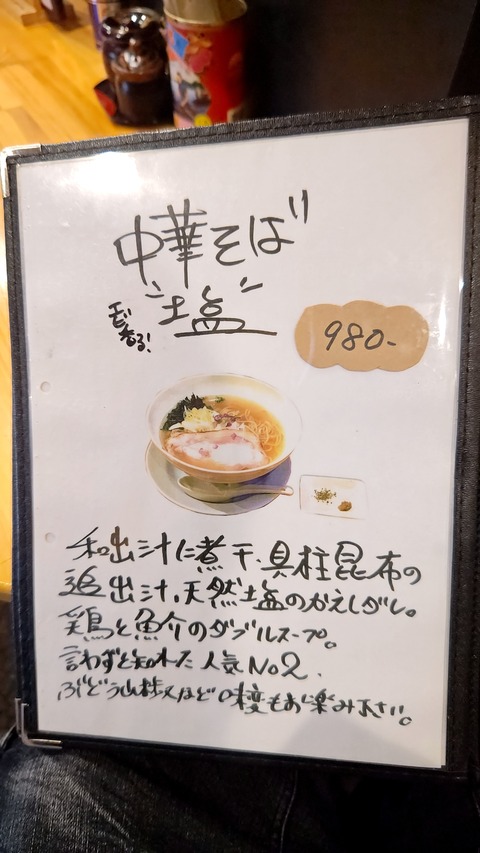 中華そば
"塩"
980-
和出汁に煮干.貝柱昆布の
追出汁.天然塩のかえしダレ。
鶏と魚介のダブルスープ。
言わずと知れた人気No2.
ぶどう山椒などの味変もお楽み下さい。